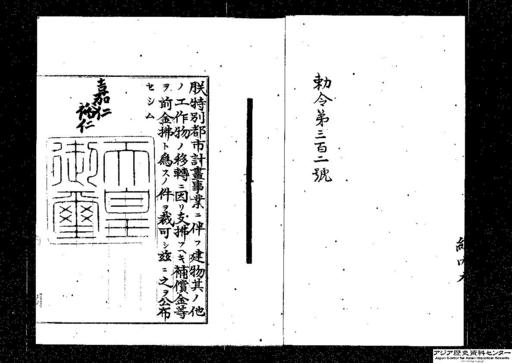 勅令第三百二號
朕特別都市計畫事業ニ伴フ建物其ノ他
ノ工作物ノ移轉ニ因リ支拂フヘキ補償金等
ヲ前金拂ト爲スノ件ヲ裁可シ茲ニ之ヲ公布
セシム
嘉仁
裕仁
天皇
御璽
アジア歴史資料センター
Japan Center for Asian Historical Records